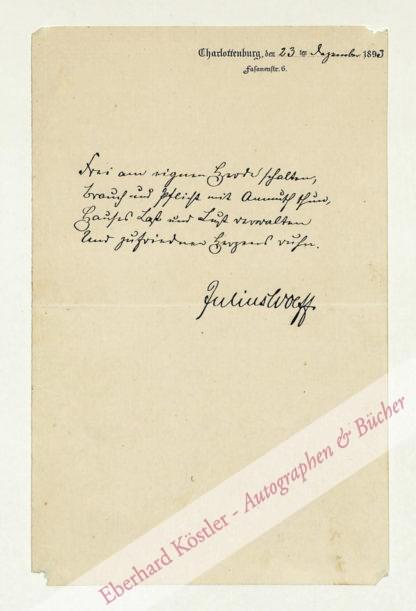 Charlottenburg, den 23ten Dezember 1893
Fasanenstr. 6.
Frei am eignen Herde schalten,
Brauch und Pflicht mit Anmuth thun,
Hauses Last und Lust verwalten
Und zufriednen Herzens ruhn.
Julius Wolff.
Eberhard Köstler - Autographen & Bücher